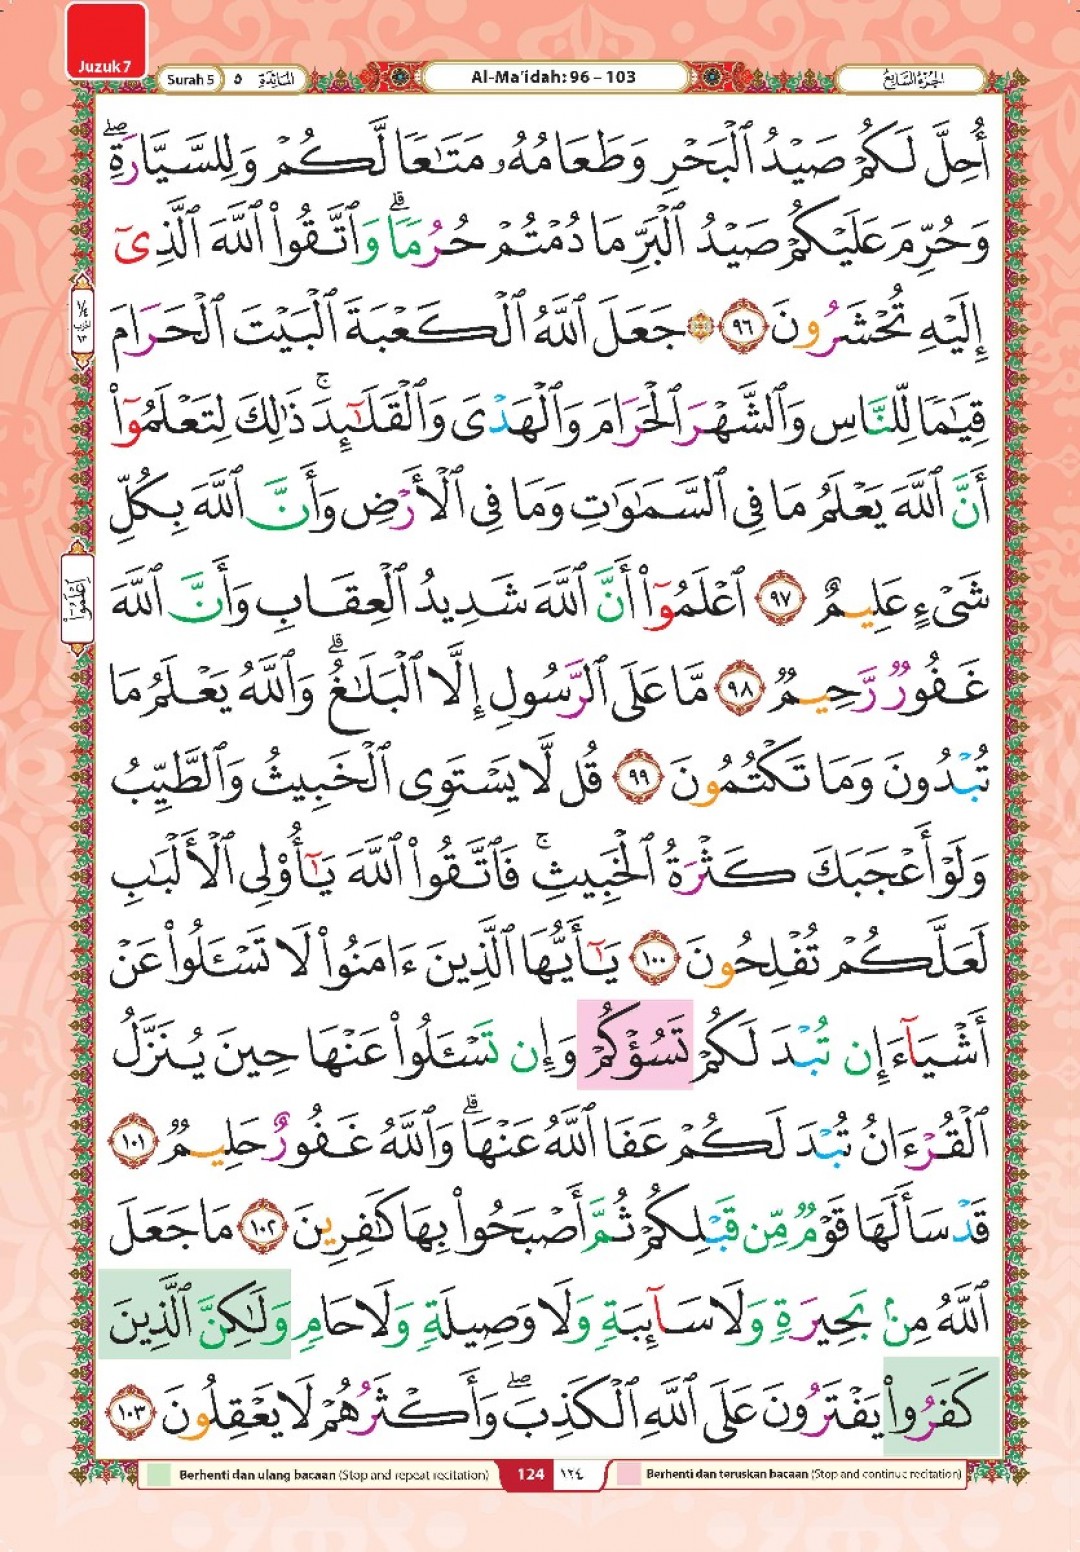 Juzuk 7
Surah 5 ٥ المائدة
Al-Ma'idah: 96 – 103
الجزء السابع
أُحِلَّ لَكُمْ صَيْدُ ٱلْبَحْرِ وَطَعَامُهُۥ مَتَٰعًا لَّكُمْ وَلِلسَّيَّارَةِۖ
وَحُرِّمَ عَلَيْكُمْ صَيْدُ ٱلْبَرِّ مَا دُمْتُمْ حُرُمًاۗ وَٱتَّقُوا۟ ٱللَّهَ ٱلَّذِىٓ
إِلَيْهِ تُحْشَرُونَ ٩٦ ۞ جَعَلَ ٱللَّهُ ٱلْكَعْبَةَ ٱلْبَيْتَ ٱلْحَرَامَ
قِيَٰمًا لِّلنَّاسِ وَٱلشَّهْرَ ٱلْحَرَامَ وَٱلْهَدْىَ وَٱلْقَلَٰٓئِدَۚ ذَٰلِكَ لِتَعْلَمُوٓا۟
أَنَّ ٱللَّهَ يَعْلَمُ مَا فِى ٱلسَّمَٰوَٰتِ وَمَا فِى ٱلْأَرْضِ وَأَنَّ ٱللَّهَ بِكُلِّ
شَىْءٍ عَلِيمٌ ٩٧ ٱعْلَمُوٓا۟ أَنَّ ٱللَّهَ شَدِيدُ ٱلْعِقَابِ وَأَنَّ ٱللَّهَ
غَفُورٌ رَّحِيمٌ ٩٨ مَّا عَلَى ٱلرَّسُولِ إِلَّا ٱلْبَلَٰغُۗ وَٱللَّهُ يَعْلَمُ مَا
تُبْدُونَ وَمَا تَكْتُمُونَ ٩٩ قُل لَّا يَسْتَوِى ٱلْخَبِيثُ وَٱلطَّيِّبُ
وَلَوْ أَعْجَبَكَ كَثْرَةُ ٱلْخَبِيثِۚ فَٱتَّقُوا۟ ٱللَّهَ يَٰٓأُو۟لِى ٱلْأَلْبَٰبِ
لَعَلَّكُمْ تُفْلِحُونَ ١٠٠ يَٰٓأَيُّهَا ٱلَّذِينَ ءَامَنُوا۟ لَا تَسْـَٔلُوا۟ عَنْ
أَشْيَآءَ إِن تُبْدَ لَكُمْ تَسُؤْكُمْ وَإِن تَسْـَٔلُوا۟ عَنْهَا حِينَ يُنَزَّلُ
ٱلْقُرْءَانُ تُبْدَ لَكُمْ عَفَا ٱللَّهُ عَنْهَاۗ وَٱللَّهُ غَفُورٌ حَلِيمٌ ١٠١
قَدْ سَأَلَهَا قَوْمٌ مِّن قَبْلِكُمْ ثُمَّ أَصْبَحُوا۟ بِهَا كَٰفِرِينَ ١٠٢ مَا جَعَلَ
ٱللَّهُ مِنۢ بَحِيرَةٍ وَلَا سَآئِبَةٍ وَلَا وَصِيلَةٍ وَلَا حَامٍ وَلَٰكِنَّ ٱلَّذِينَ
كَفَرُوا۟ يَفْتَرُونَ عَلَى ٱللَّهِ ٱلْكَذِبَۖ وَأَكْثَرُهُمْ لَا يَعْقِلُونَ ١٠٣
١/٤ الحزب ١٣
ٱعْلَمُوٓا۟
Berhenti dan ulang bacaan (Stop and repeat recitation)
124 ١٢٤
Berhenti dan teruskan bacaan (Stop and continue recitation)